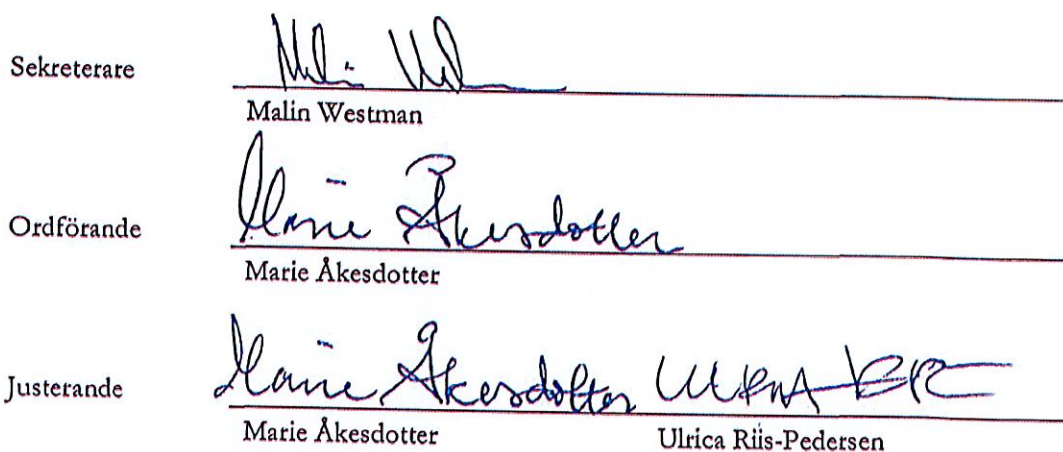 Sekreterare
Malin Westman
Ordförande
Marie Åkesdotter
Marie Åkesdotter
Justerande
Marie Åkesdotter
Marie Åkesdotter Ulrica Riis-Pedersen